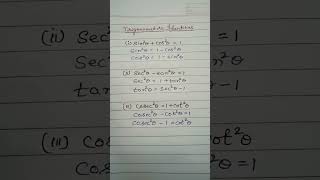 Trigonometric Identities
(i) Sin²θ + Cos²θ = 1
Sin²θ = 1 - Cos²θ
Cos²θ = 1 - Sin²θ
(ii) Sec²θ - tan²θ = 1
Sec²θ = 1 + tan²θ
tan²θ = Sec²θ - 1
Cosec²θ = 1 + Cot²θ
Cosec²θ - Cot²θ = 1
Cosec²θ - 1 = Cot²θ